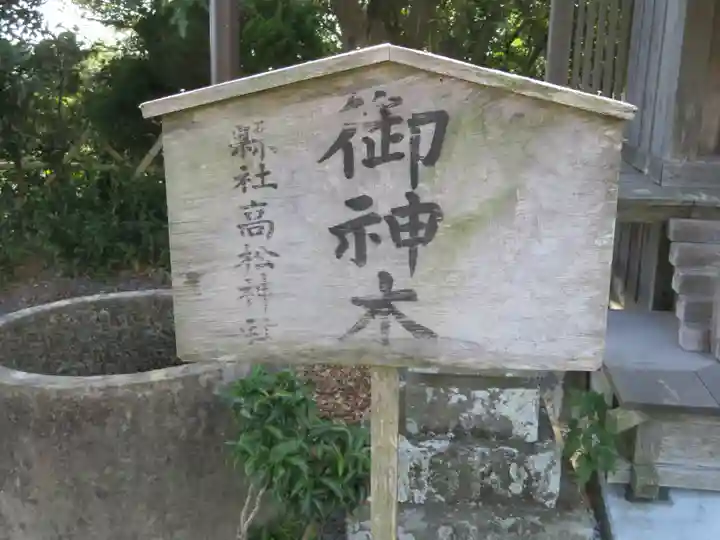 御神木
縣社高松神社